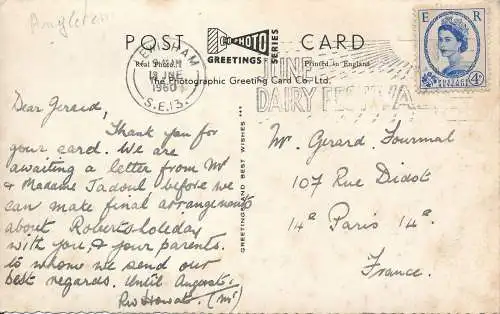 Pingleton
POST CARD
PHOTO
GREETINGS
SERIES
Real Photo.
Printed in England
The Photographic Greeting Card Co. Ltd.
LEWISHAM
JNE
1960
S.E.13.
JUNE
DAIRY FESTIVAL
E R
POSTAGE
REVENUE
4D
GREETINGS AND BEST WISHES
Dear Gerard,
Thank you for
your card. We are
awaiting a letter from Mr
& Madame Jadoul before we
can make final arrangements
about Robert's holiday
with you, & your parents.
to whom we send our
best regards. Until August.
(Mr)
Mr. Gerard Fourmal
107 Rue Didot
14e Paris 14e.
France.